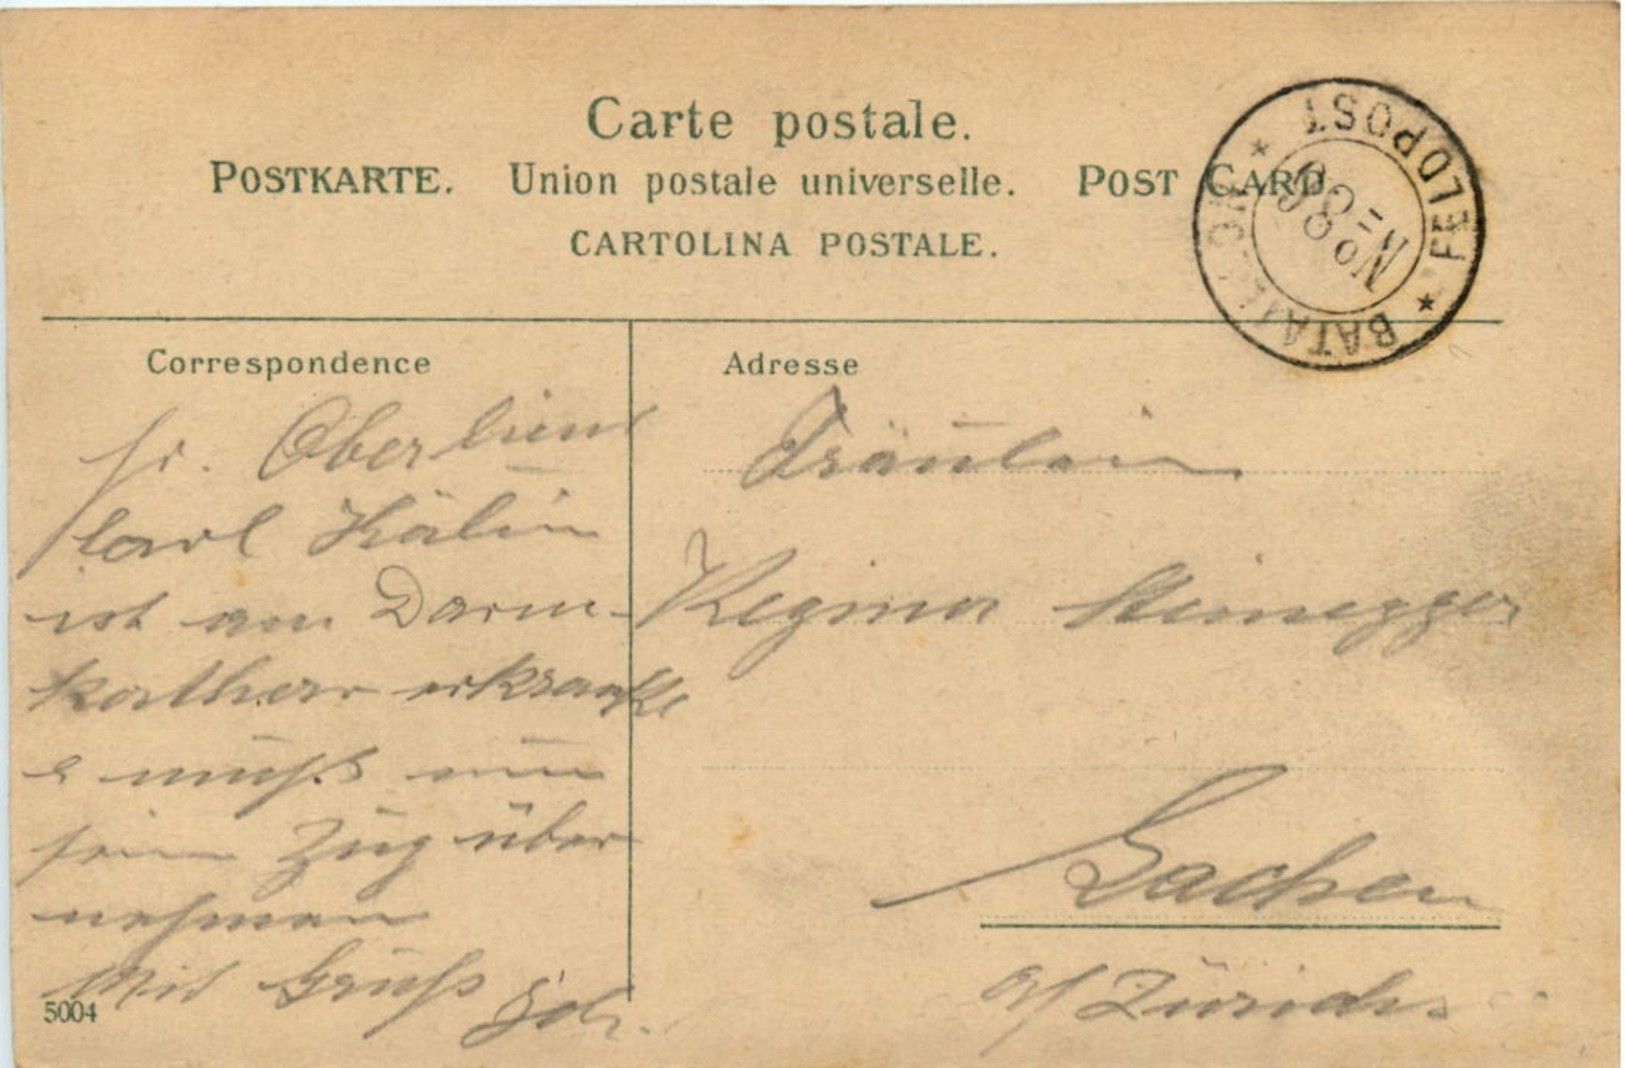 Carte postale.
POSTKARTE. Union postale universelle. POST CARD.
CARTOLINA POSTALE.
FELDPOST * BATAILLON *
No 86
Correspondence
Hr. Oberlieut
Carl Kälin
ist am Darm-
katharr erkrankt
& muß nun
sein Zug über
nehmen
Mit Gruß
5004
Adresse
Fräulein
Regina Steinegger
Lachen
a/Zürichs